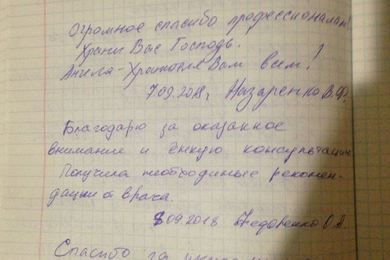 Огромное спасибо профессионалам!
Храни Вас Господь.
Ангела-Хранителя Вам всем!
7.09.2018г. Назаренко В.Ф.
Благодарю за оказанное
внимание и консультацию
Получила необходимые рекомен-
дации от врача.
8.09.2018 Федоренко О.А.
Спасибо за